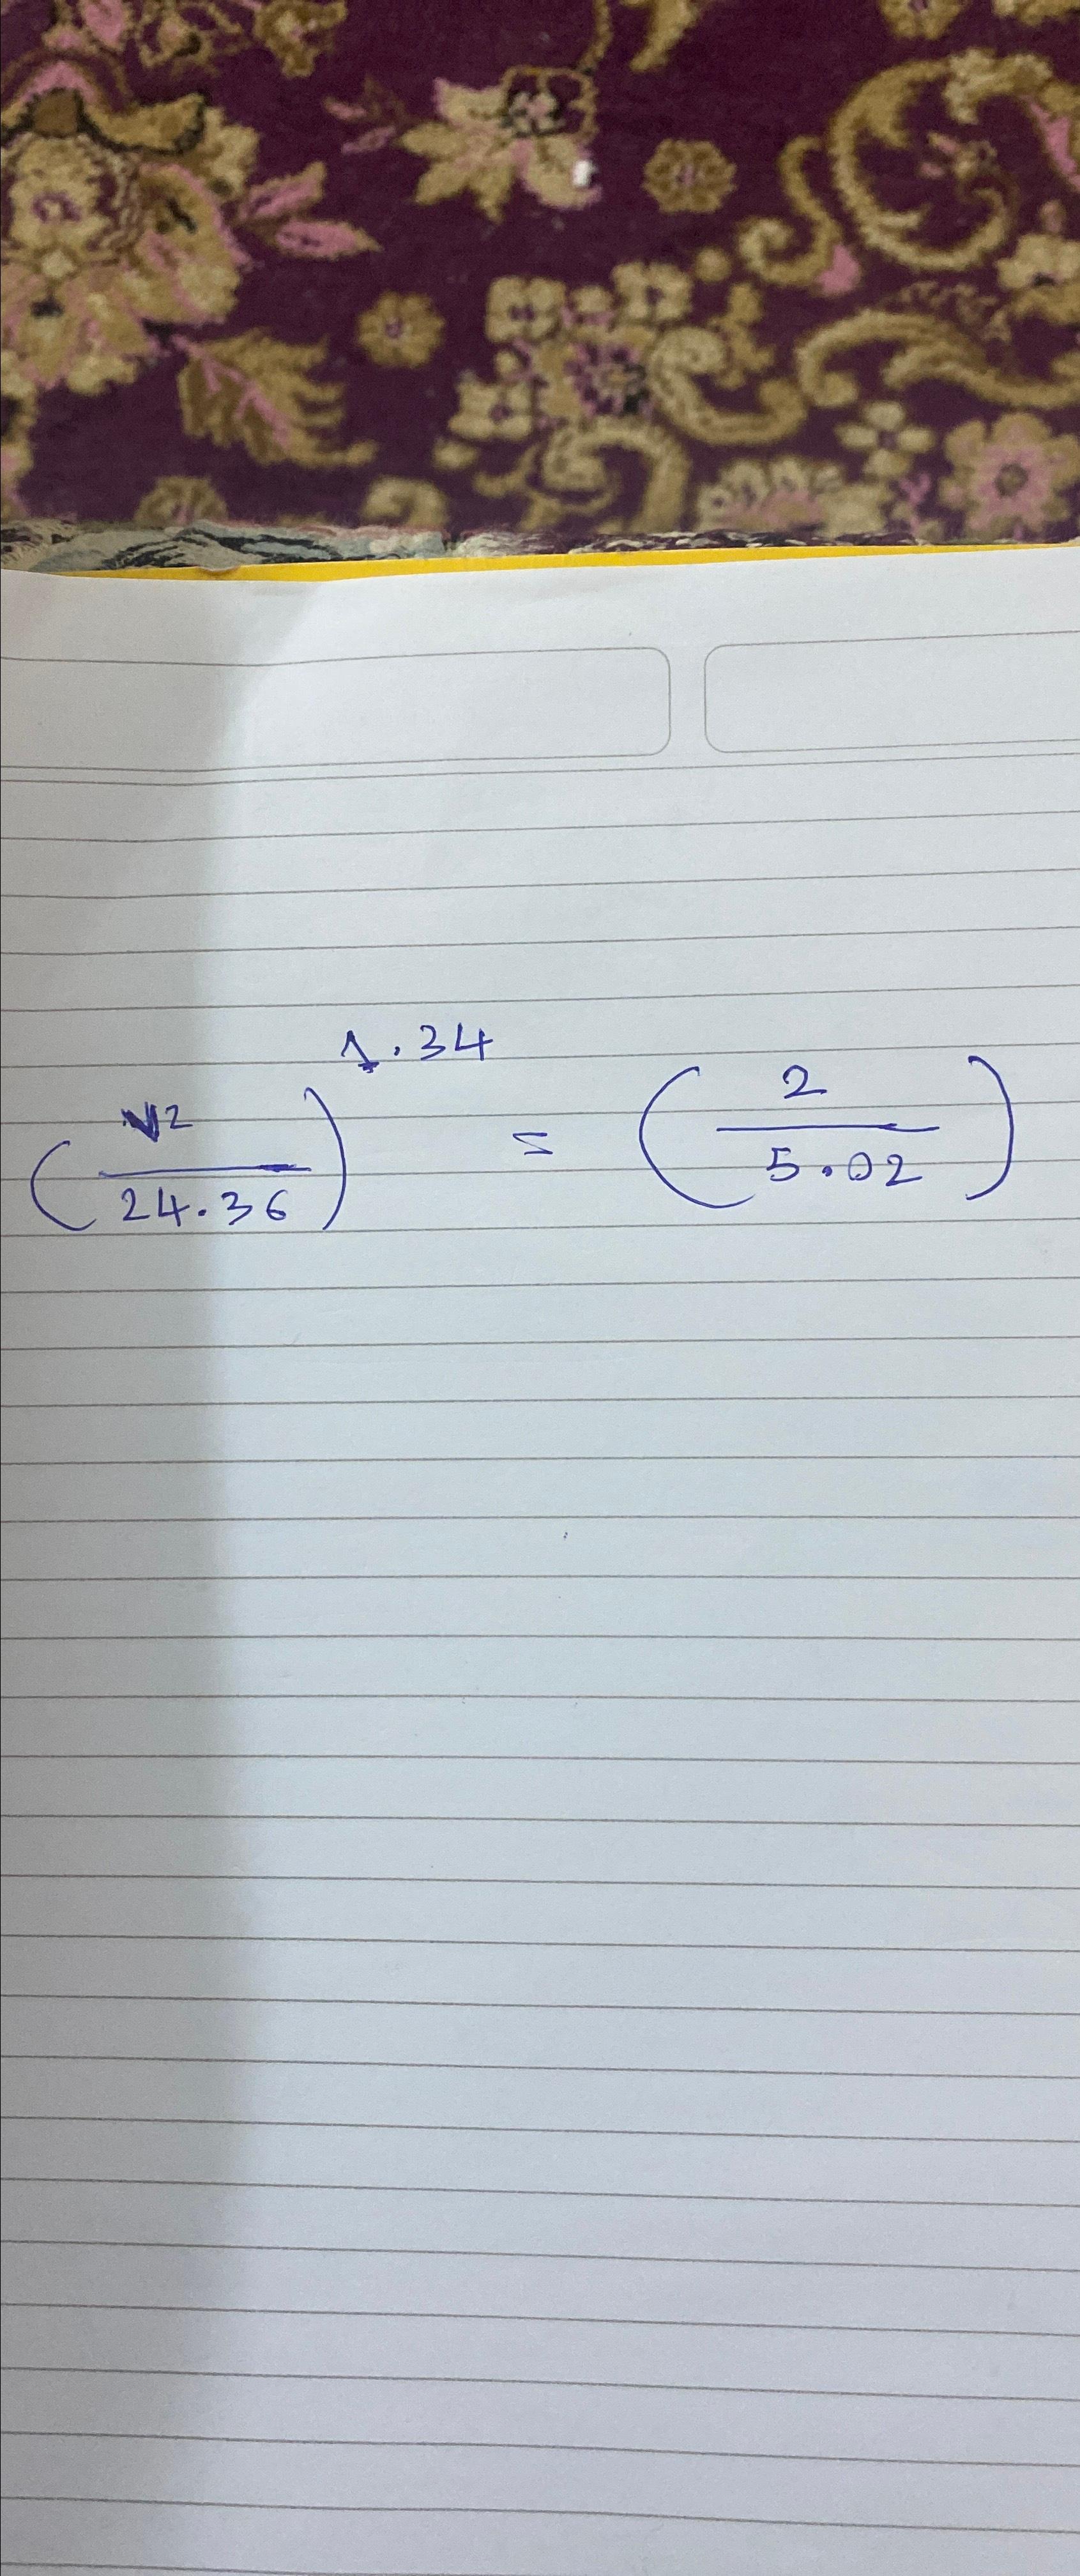 (V2/24.36)^1.34 = (2/5.02)